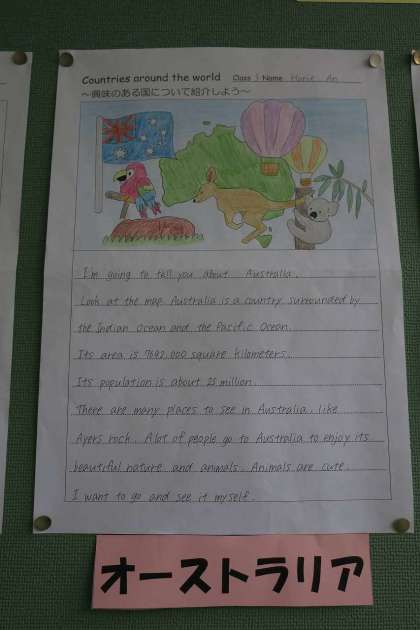 Countries around the world Class 3 Name Horie An
～興味のある国について紹介しよう～
I'm going to tell you about Australia.
Look at the map. Australia is a country surrounded by
the Indian Ocean and the Pacific Ocean.
Its area is 7692,000 square kilometers.
Its population is about 25 million.
There are many places to see in Australia, like
Ayers rock. A lot of people go to Australia to enjoy its
beautiful nature and animals. Animals are cute.
I want to go and see it myself.
オーストラリア